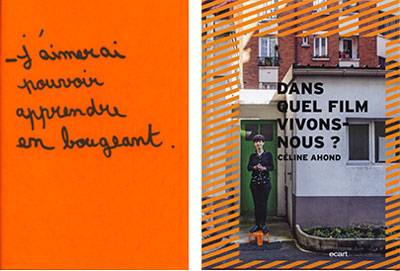 _j'aimerai
pouvoir
apprendre
en bougeant.
DANS
QUEL FILM
VIVONS-
NOUS ?
CÉLINE AHOND
ecart